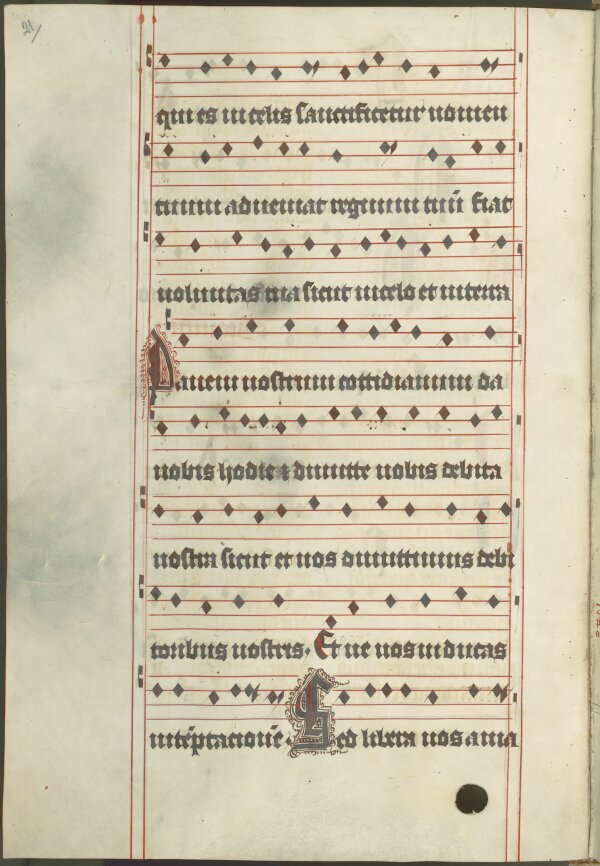 21
qui es in celis sanctificetur nomen
tuum adueniat regnum tuū fiat
uoluntas tua sicut in celo et in terra
Panem nostrum cottidianum da
nobis hodie & dimitte nobis debita
nostra sicut et nos dimittimus debi
toribus nostris. Et ne nos inducas
in tēptacionē. Sed libera nos a ma